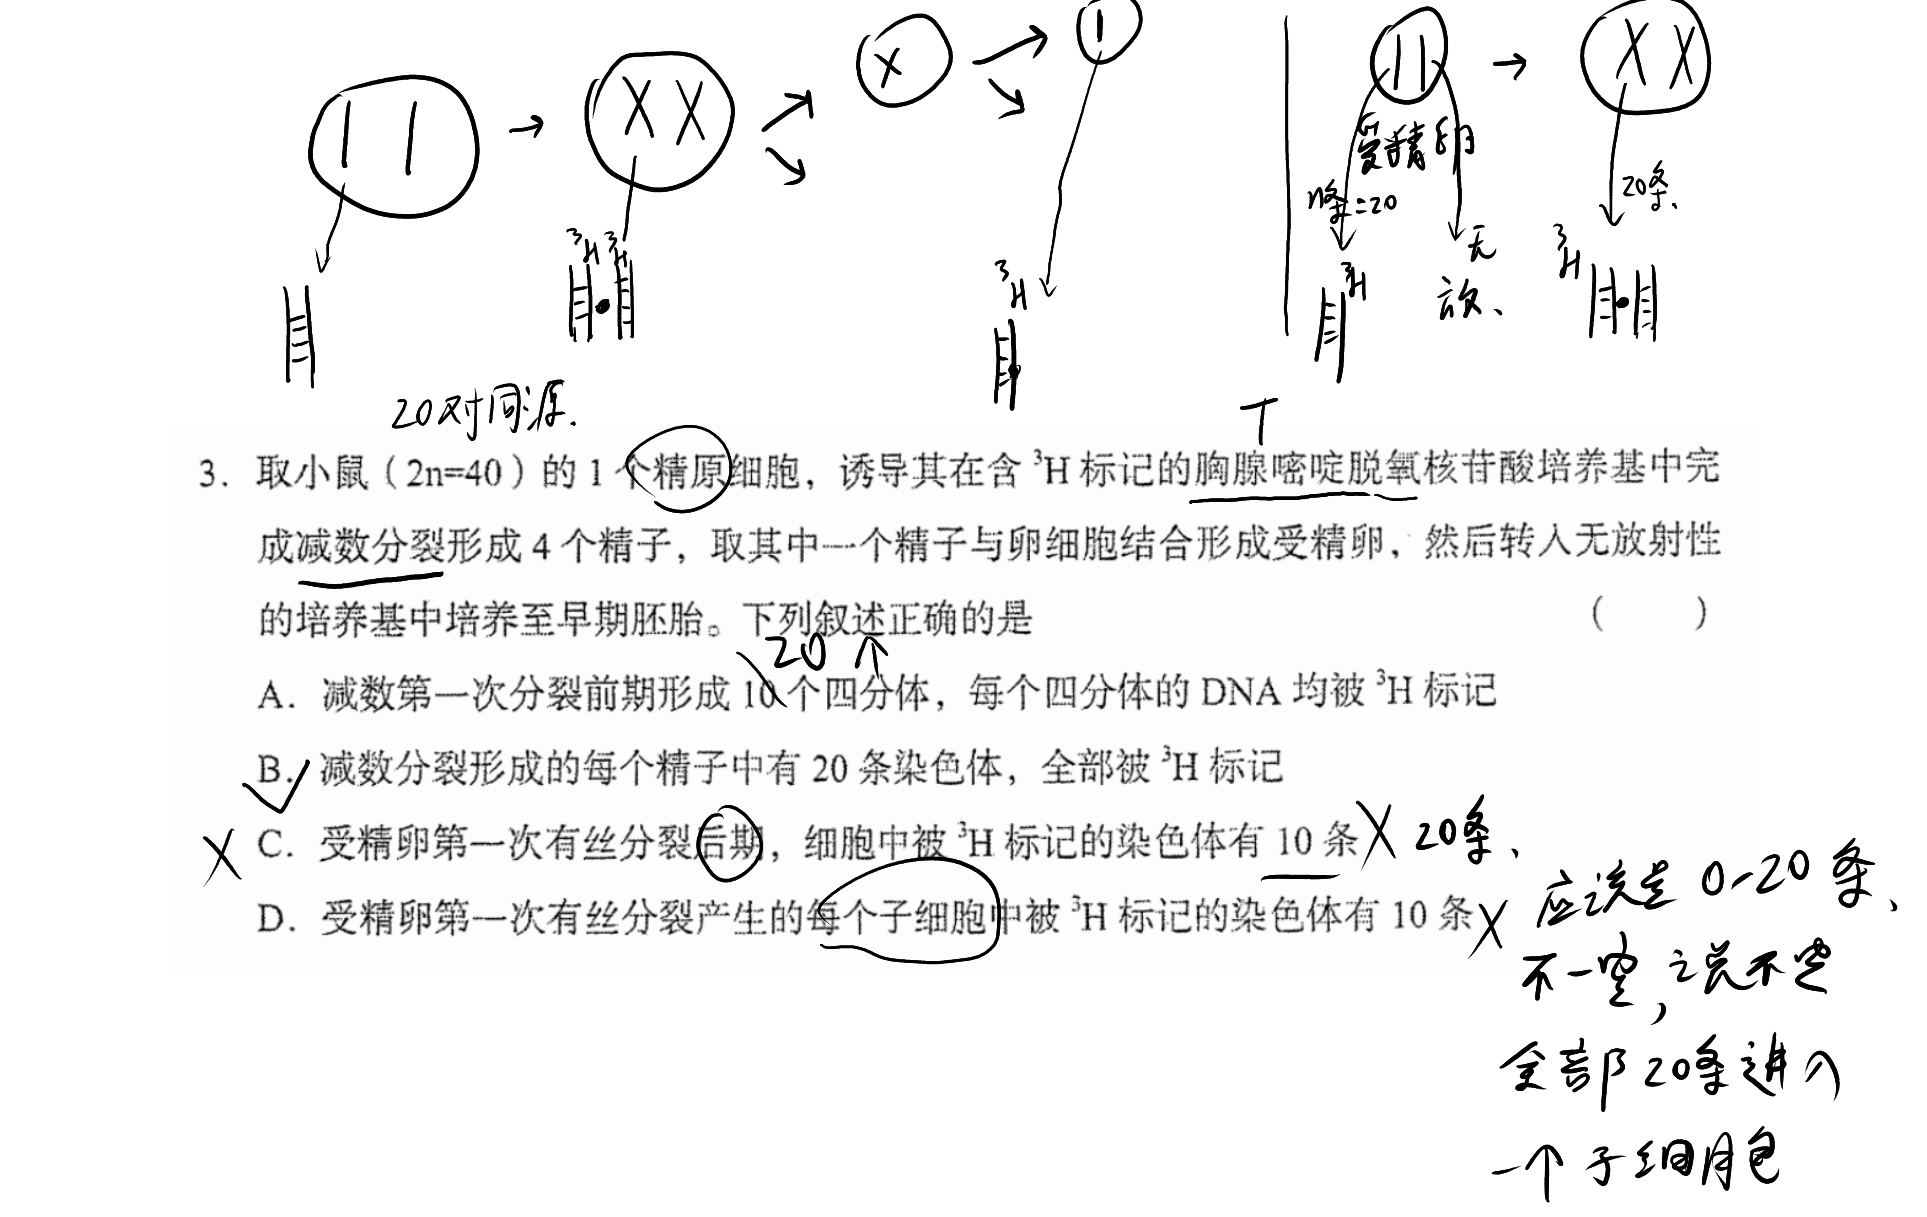 受精卵
n条=20
20条、
³H ³H
³H
³H
³H
无
放、
20对同源.
T
3. 取小鼠（2n=40）的 1 个精原细胞，诱导其在含 ³H 标记的胸腺嘧啶脱氧核苷酸培养基中完
成减数分裂形成 4 个精子，取其中一个精子与卵细胞结合形成受精卵，然后转入无放射性
的培养基中培养至早期胚胎。下列叙述正确的是 （ ）
20个
A. 减数第一次分裂前期形成 10 个四分体，每个四分体的 DNA 均被 ³H 标记
B. 减数分裂形成的每个精子中有 20 条染色体，全部被 ³H 标记
C. 受精卵第一次有丝分裂后期，细胞中被 ³H 标记的染色体有 10 条 X 20条、
D. 受精卵第一次有丝分裂产生的每个子细胞中被 ³H 标记的染色体有 10 条 X
应该是 0-20 条、
不一定，说不定
全部20条进入
一个子细胞